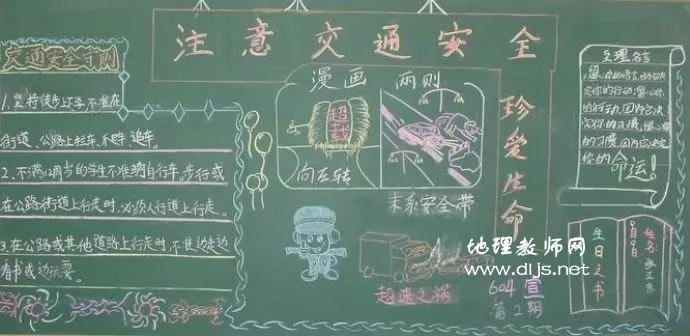 注意交通安全
珍爱生命
交通安全守则
1.坚持徒步上下学不准在
街道、公路上拦车、爬车、追车。
2.不满12周岁的学生不准骑自行车,步行或
在公路街道上行走时,必须人行道上行走。
3.在公路或其他道路上行走时,不准边走边
看书或边玩耍。
漫画 两则
超载
向左转
未系安全带
超速之祸
604宣
第2期
定你的行动,
的行动,
定你的习惯,
的习惯,
你的命运!
生日之书
姓名
地理教师网
www.dljs.net